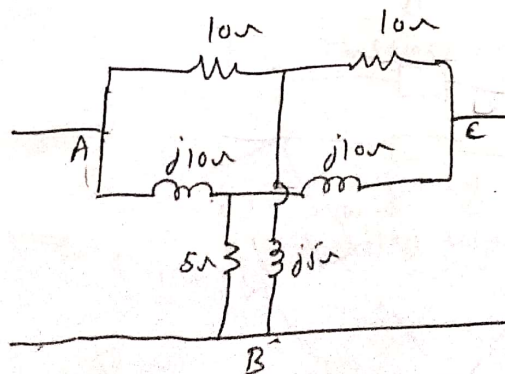 10Ω 10Ω
A C
j10Ω j10Ω
5Ω j5Ω
B